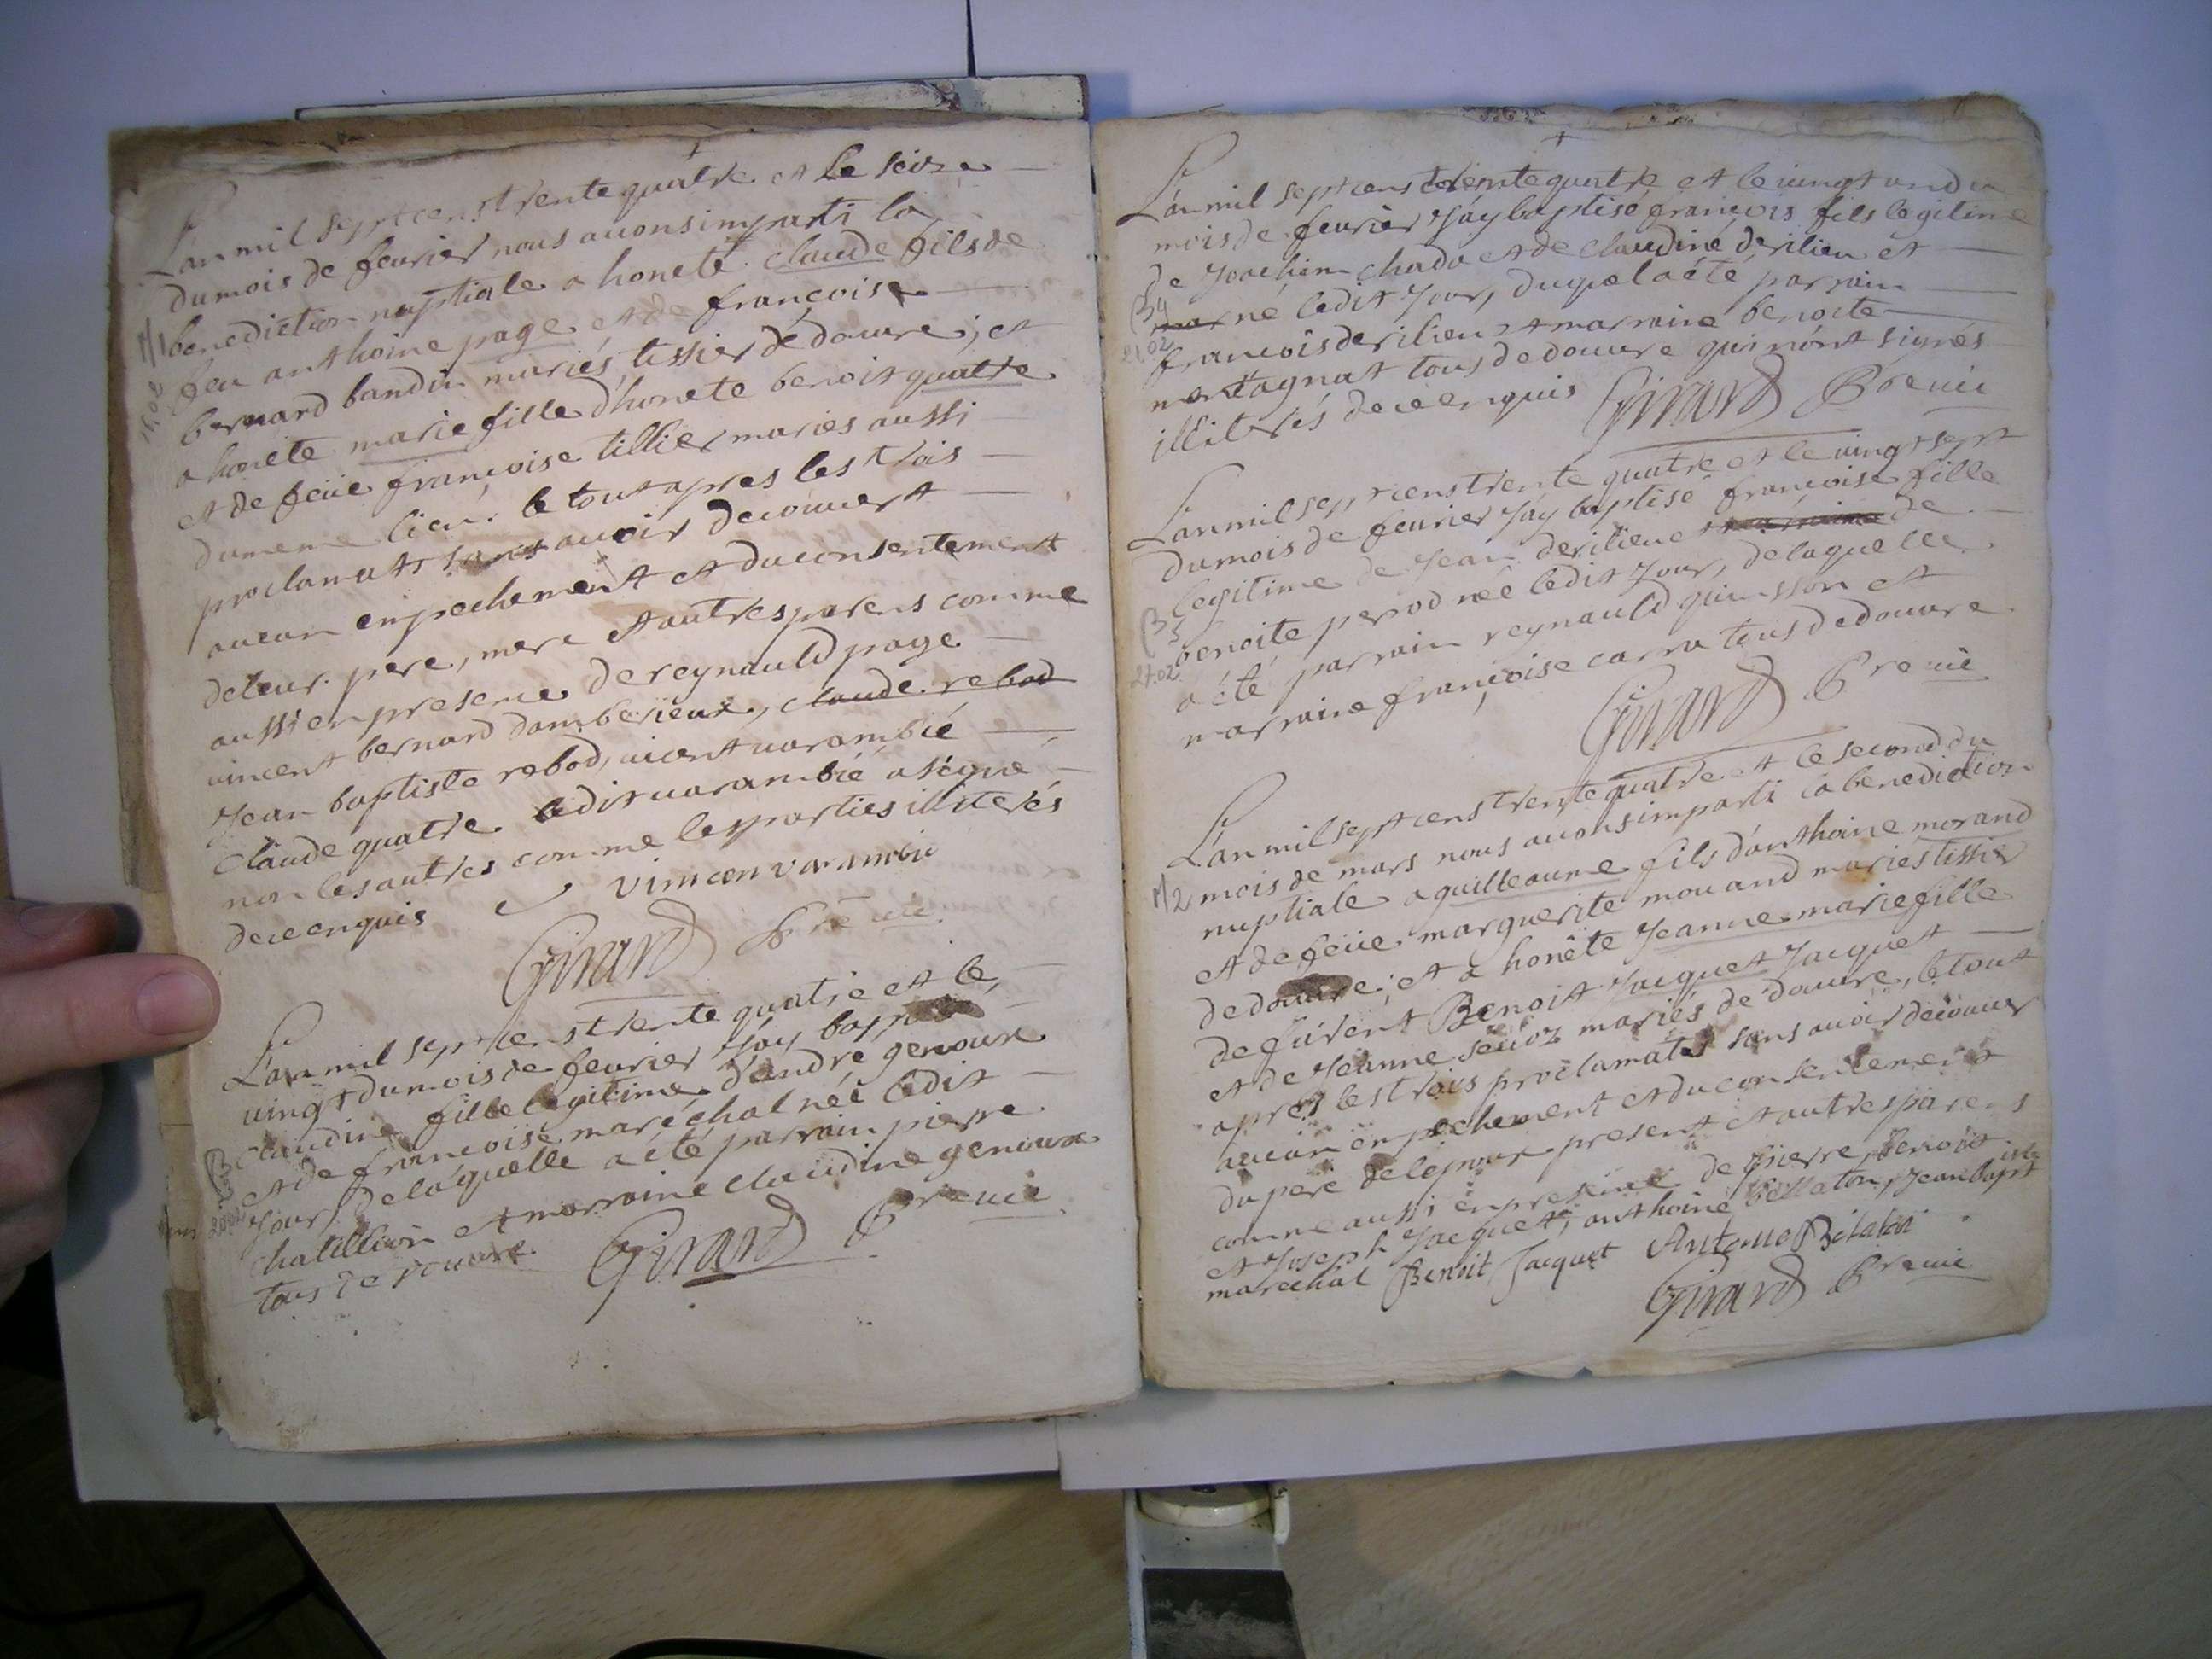 L'an mil sept cens trente quatre et le seize
du mois de feurier nous auons imparti la
M1 benediction nuptiale a honete claude fils de
16.02
feu anthoine page et de françoise
bernard bandin mariés tissier de douure; et
a honete marie fille d'honete benoit quatre
et de feüe françoise tillier mariés aussi
du meme lieu: le tout apres les trois
proclamats sans auoir decouuert
aucun enpechement et du consentement
de leur pere, mere et autres parens comme
aussi en presence de reynauld page
vincent bernard damberieux, claude rebod
Jean baptiste rebod, uicent varambié
claude quatre ledit uarambié a signé
non les autres comme les parties illiterés
de ce enquis vincen varambie
Girard Preuie
L'an mil sept cens trente quatre et le
uingt du mois de feurier J'ay baptisé
claudine fille legitime d'andre genoux
B3
et de francoise maréchal née ledit
20.02
Jour, de laquelle a été parrain pierre
chatillion et marraine claudine genoux
tous de douure. Girard Preuie
L'an mil sept cens trente quatre et le uingt un du
mois de feurier J'ay baptisé françois fils legitime
de Joachim chada et de claudine derilieu et
B4
né ledit Jour, duquel a été parrain
21.02
francois derilieu et marraine benoite
montagnat tous de douure qui n'ont signés
illiterés de ce enquis Girard Preuie
L'an mil sept cens trente quatre et le uingt sept
du mois de feurier J'ay baptisé françoise fille
legitime de Jean derilieue de
B5
benoite perod née ledit Jour, de laquelle
27.02
a été parrain reynauld guinsson et
marraine françoise carra tous de douure
Girard Preuie
L'an mil sept cens trente quatre et le second du
mois de mars nous auons imparti la benediction
M2
nuptiale a guilleaume fils d'anthoine morand
et de feüe marguerite mouand mariés tissier
de douure; et a honête Jeanne marie fille
de Benoit Jacquet Jacquet
et de Jeanne seuoz mariés de douure, le tout
apres les trois proclamats sans auoir decouuer
aucun enpechement et du consentement
du pere de lepoux present et autres parens
comme aussi en presence de pierre, benoit
et Joseph Jacquet, anthoine bellaton, Jean bapt
marechal Benoit Jacquet Antoine Bélaton
Girard Preuie